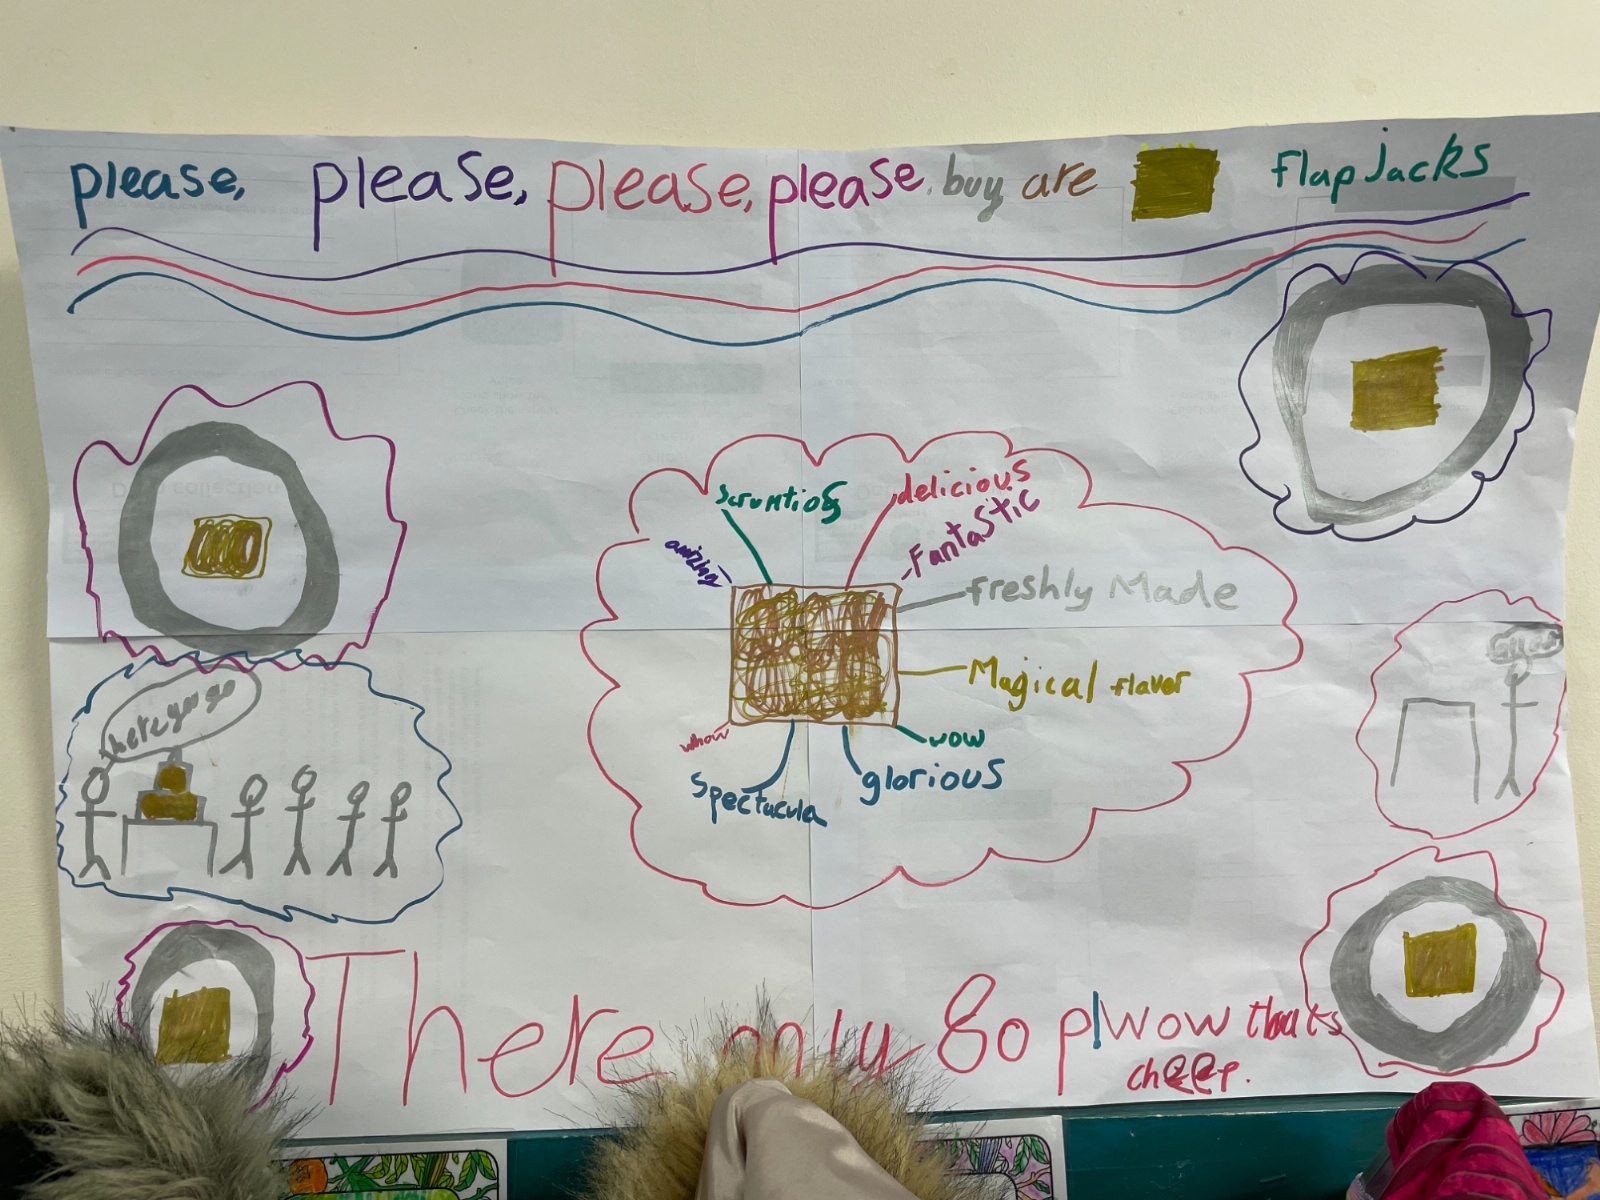 please, please, please, please. buy are flapjacks
scrumtios
delicious
amizing
Fantastic
freshly Made
Magical flaver
whow
wow
Spectucula
glorious
here you go
There only 80 p! wow thats
cheep.